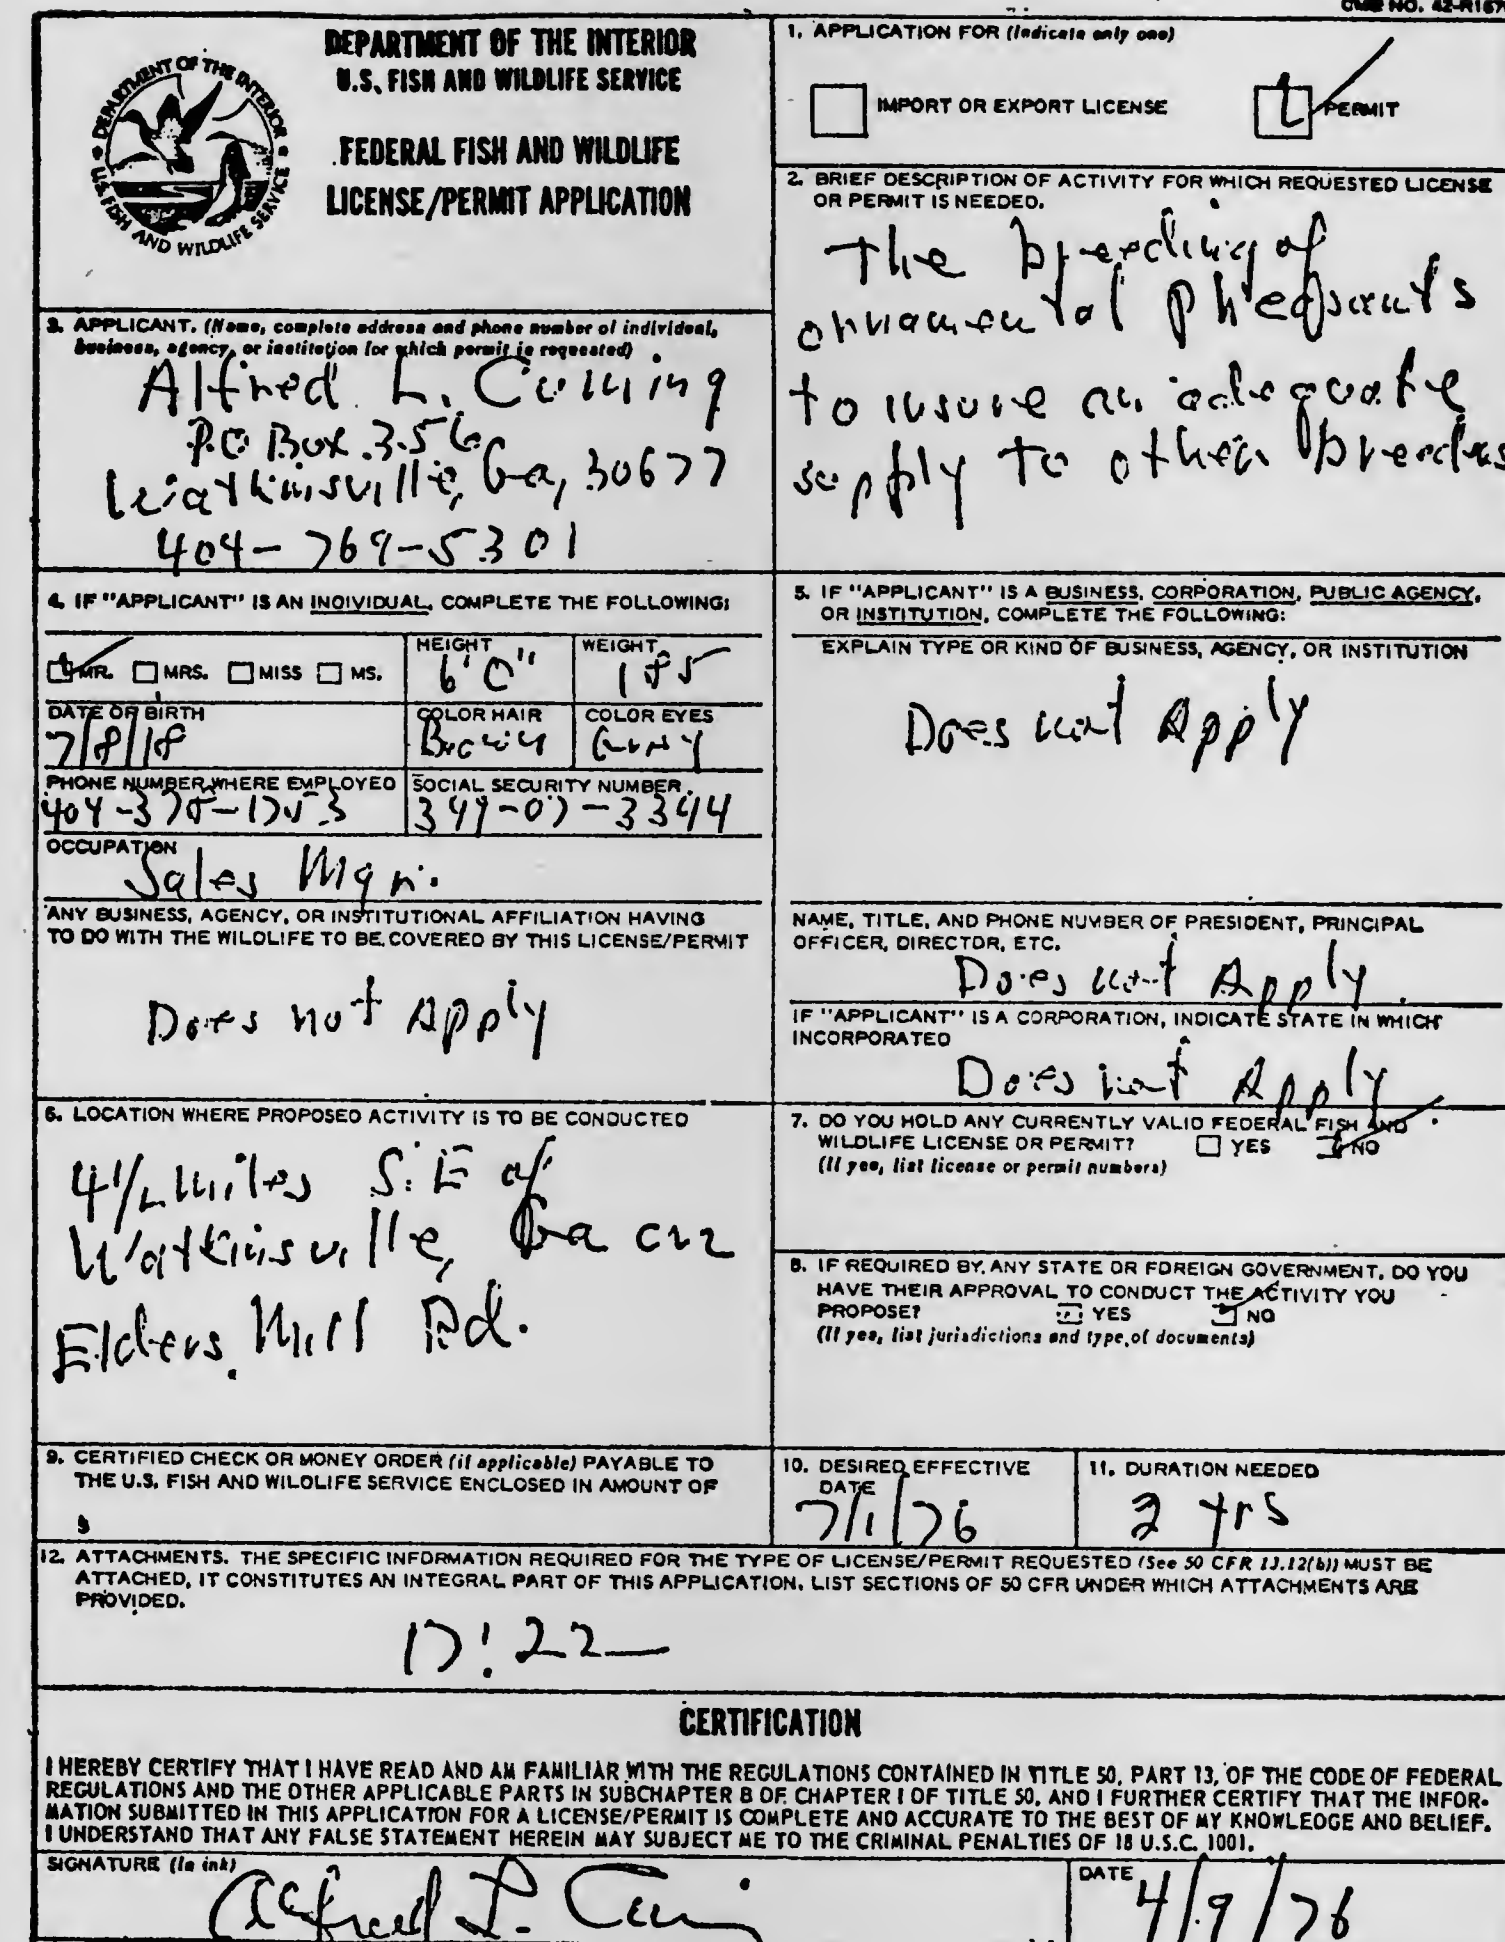 OMB NO. 42-R1670
DEPARTMENT OF THE INTERIOR
U.S. FISH AND WILDLIFE SERVICE
FEDERAL FISH AND WILDLIFE
LICENSE/PERMIT APPLICATION
DEPARTMENT OF THE INTERIOR
U.S. FISH AND WILDLIFE SERVICE
1. APPLICATION FOR (Indicate only one)
IMPORT OR EXPORT LICENSE
PERMIT
2. BRIEF DESCRIPTION OF ACTIVITY FOR WHICH REQUESTED LICENSE
OR PERMIT IS NEEDED.
The breeding of
ornamental pheasants
to insure an adequate
supply to other breeders
3. APPLICANT. (Name, complete address and phone number of individual,
business, agency, or institution for which permit is requested)
Alfred L. Cuming
P.O Box 356
Watkinsville, Ga, 30677
404-769-5301
4. IF "APPLICANT" IS AN INDIVIDUAL, COMPLETE THE FOLLOWING:
MR. MRS. MISS MS.
HEIGHT
6'0"
WEIGHT
185
DATE OF BIRTH
7/8/18
COLOR HAIR
Brown
COLOR EYES
PHONE NUMBER WHERE EMPLOYED
SOCIAL SECURITY NUMBER
OCCUPATION
Sales Mgr.
ANY BUSINESS, AGENCY, OR INSTITUTIONAL AFFILIATION HAVING
TO DO WITH THE WILDLIFE TO BE COVERED BY THIS LICENSE/PERMIT
Does not Apply
5. IF "APPLICANT" IS A BUSINESS, CORPORATION, PUBLIC AGENCY,
OR INSTITUTION, COMPLETE THE FOLLOWING:
EXPLAIN TYPE OR KIND OF BUSINESS, AGENCY, OR INSTITUTION
Does not Apply
NAME, TITLE, AND PHONE NUMBER OF PRESIDENT, PRINCIPAL
OFFICER, DIRECTOR, ETC.
Does not Apply
IF "APPLICANT" IS A CORPORATION, INDICATE STATE IN WHICH
INCORPORATED
Does not Apply
6. LOCATION WHERE PROPOSED ACTIVITY IS TO BE CONDUCTED
4 1/2 miles S.E of
Watkinsville, Ga on
Elders Mill Rd.
7. DO YOU HOLD ANY CURRENTLY VALID FEDERAL FISH AND
WILDLIFE LICENSE OR PERMIT? YES NO
(If yes, list license or permit numbers)
8. IF REQUIRED BY ANY STATE OR FOREIGN GOVERNMENT, DO YOU
HAVE THEIR APPROVAL TO CONDUCT THE ACTIVITY YOU
PROPOSE? YES NO
(If yes, list jurisdictions and type of documents)
9. CERTIFIED CHECK OR MONEY ORDER (if applicable) PAYABLE TO
THE U.S. FISH AND WILDLIFE SERVICE ENCLOSED IN AMOUNT OF
$
10. DESIRED EFFECTIVE
DATE
7/1/76
11. DURATION NEEDED
2 yrs
12. ATTACHMENTS. THE SPECIFIC INFORMATION REQUIRED FOR THE TYPE OF LICENSE/PERMIT REQUESTED (See 50 CFR 13.12(b)) MUST BE
ATTACHED, IT CONSTITUTES AN INTEGRAL PART OF THIS APPLICATION. LIST SECTIONS OF 50 CFR UNDER WHICH ATTACHMENTS ARE
PROVIDED.
17.22
CERTIFICATION
I HEREBY CERTIFY THAT I HAVE READ AND AM FAMILIAR WITH THE REGULATIONS CONTAINED IN TITLE 50, PART 13, OF THE CODE OF FEDERAL
REGULATIONS AND THE OTHER APPLICABLE PARTS IN SUBCHAPTER B OF CHAPTER I OF TITLE 50, AND I FURTHER CERTIFY THAT THE INFOR-
MATION SUBMITTED IN THIS APPLICATION FOR A LICENSE/PERMIT IS COMPLETE AND ACCURATE TO THE BEST OF MY KNOWLEDGE AND BELIEF.
I UNDERSTAND THAT ANY FALSE STATEMENT HEREIN MAY SUBJECT ME TO THE CRIMINAL PENALTIES OF 18 U.S.C. 1001.
SIGNATURE (In ink)
Alfred L. Cuming
DATE
4/9/76